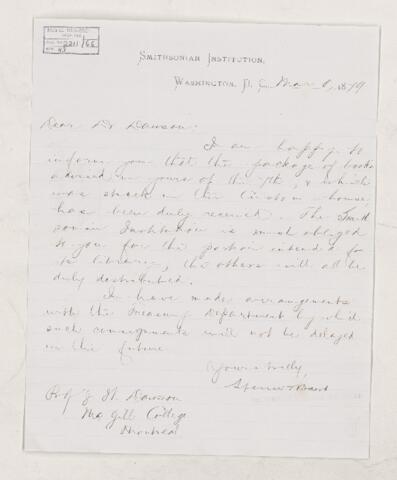 2211/65
SMITHSONIAN INSTITUTION,
WASHINGTON, D. C. Mar 1879
Dear Dr Dawson:
I am happy to
inform you that the package of books
advised in yours of the 7th, & which
was stuck in the Custom house
has been duly received. The Smith
sonian Institution is much obliged
to you for the portion intended for
its library, the others will all be
duly distributed.
I have made arrangements
with the Treasury Department by which
such consignments will not be delayed
in the future.
Yours truly,
Spencer F Baird
Prof J. W. Dawson
McGill College
Montreal